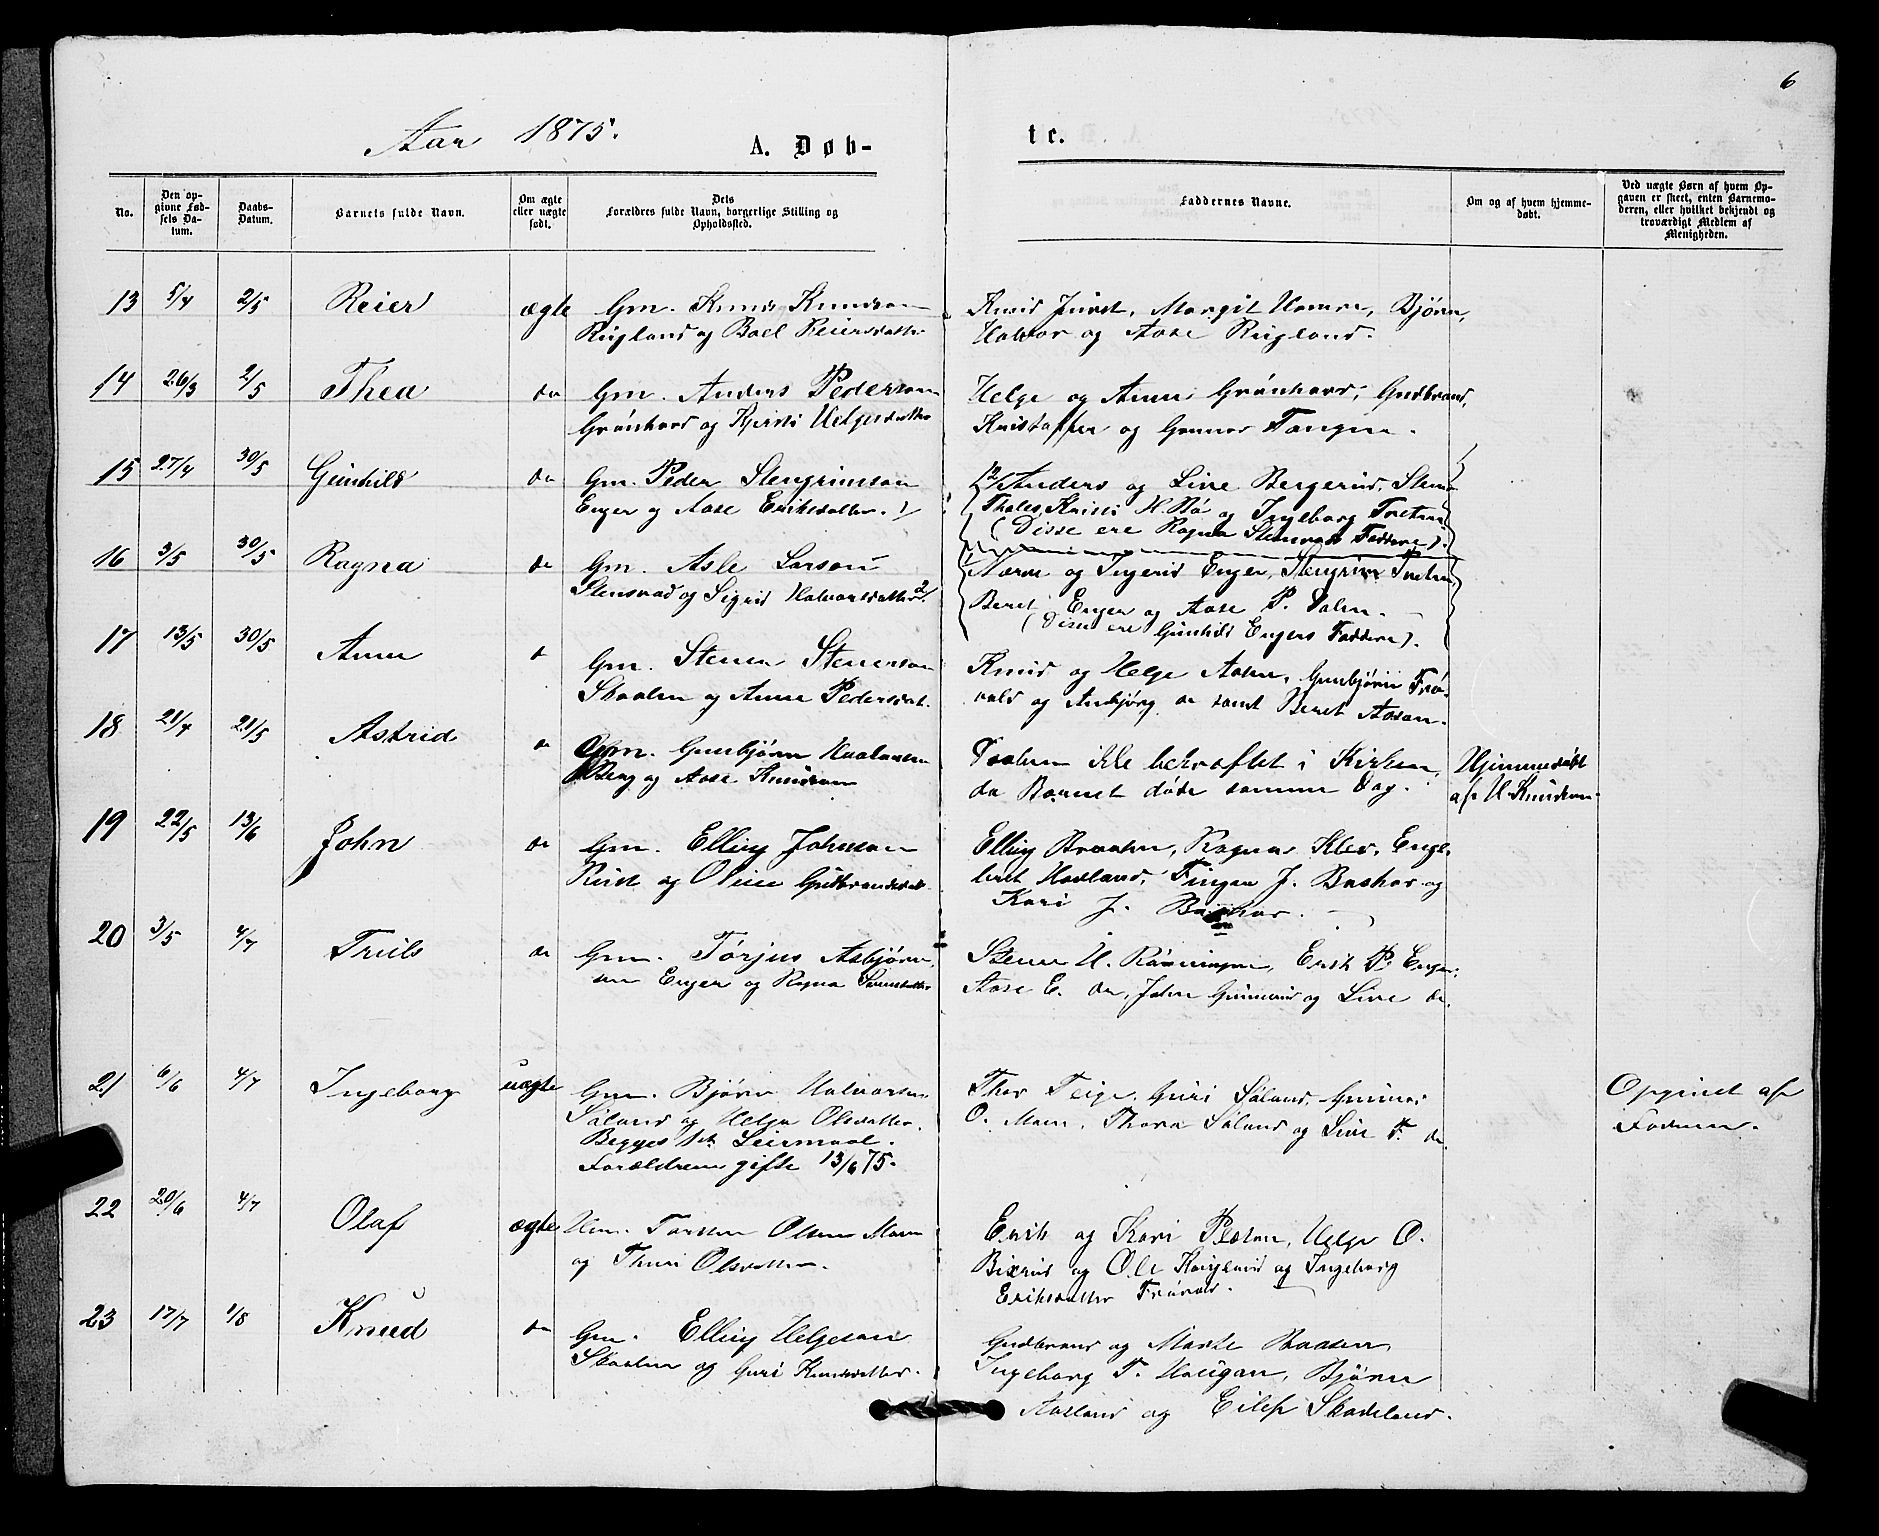 6
Aar 1875.
A. Døb-
te.
No.
Den op-
givne Fød-
sels Da-
tum.
Daabs-
Datum.
Barnets fulde Navn.
Om ægte
eller uægte
født.
Dets
Forældres fulde Navn, borgerlige Stilling og
Opholdssted.
Faddernes Navne.
Om og af hvem hjemme-
døbt.
Ved uægte Børn af hvem Op-
gaven er skeet, enten Barnemo-
deren, eller hvilket bekjendt og
troværdigt Medlem af
Menigheden.
13 5/4 2/5 Reier ægte Gm. Knud Knudson
Rugland og Boel Reiersdatter
Knud Juvet, Margit Hamre, Bjørn,
Halvor og Aase Rugland.
14 26/3 2/5 Thea do Gm. Anders Pederson
Grønhovd og Kjersti Helgesdatter
Helge og Anne Grønhovd, Gudbrand,
Kristoffer og Gunnor Tangen.
15 27/4 30/5 Gunhild do Gm. Peder Stengrimson
Enger og Aase Eriksdatter. 1/
Anders og Live Bergerud,
Kristi H. Rø og Ingeborg Trætun
(Disse ere Ragna Stensrud Faddere).
16 3/5 30/5 Ragna do Gm. Asle Larson
Stensrud og Sigrid Halvorsdatter 2/.
og Ingerid Enger, Stengrim Trætun,
Beret Enger og Aase P. Dalen.
(Disse ere Gunhild Engers Faddere).
17 13/5 30/5 Anne d Gm. Stener Stenerson
Skaalen og Anne Pedersdat.
Knud og Helge Aasen, Gunbjørn Frø-
vold og Anbjørg do samt Beret Aasan.
18 21/4 21/5 Astrid d Gm. Gunbjørn
Berg og Aase Knudson
Daaben ikke bekræftet i Kirken,
da Barnet døde samme Dag.
Hjemmedøbt
af H. Knudsen.
19 22/5 13/6 John do Gm. Elling Johnson
Rust og Oline Gudbrandsdat.
Elling Braaten, Ragna Klev, Enge-
bret Havland, Fingar J. Bakhar og
Kari J.
20 3/5 4/7 Truls do Gm. Torjus Asbjørn-
sen Enger og Ragna
Stener H. Rønningen, Erik P. Enger,
Aase E. do, John Gunnerud og Live do.
21 6/6 4/7 Ingeborg uægte Gm. Bjørn Halvorsen
Søland og Helga Olsdatter.
Begges 1ste Leiermaal.
Forældrene gifte 13/6 75.
Thor Teige, Guri Søland, Gunnar
O. Moen, Thora Søland og Live T. do
Opgivet af
Faderen.
22 20/6 4/7 Olaf ægte Hm. Torsten Olsen Moen
og Thuri Olsdatter.
Erik og Kari Plæsen, Helge O.
Bixrud og Ole Haugland og Ingeborg
Eriksdatter Frøvold.
23 17/7 1/8 Knud do Gm. Elling Helgeson
Skaalen og Guri Knudsdatter.
Gudbrand og Marte Braaten,
Ingeborg T. Haugan, Bjørn
Aasland og Eilef Skadeland.